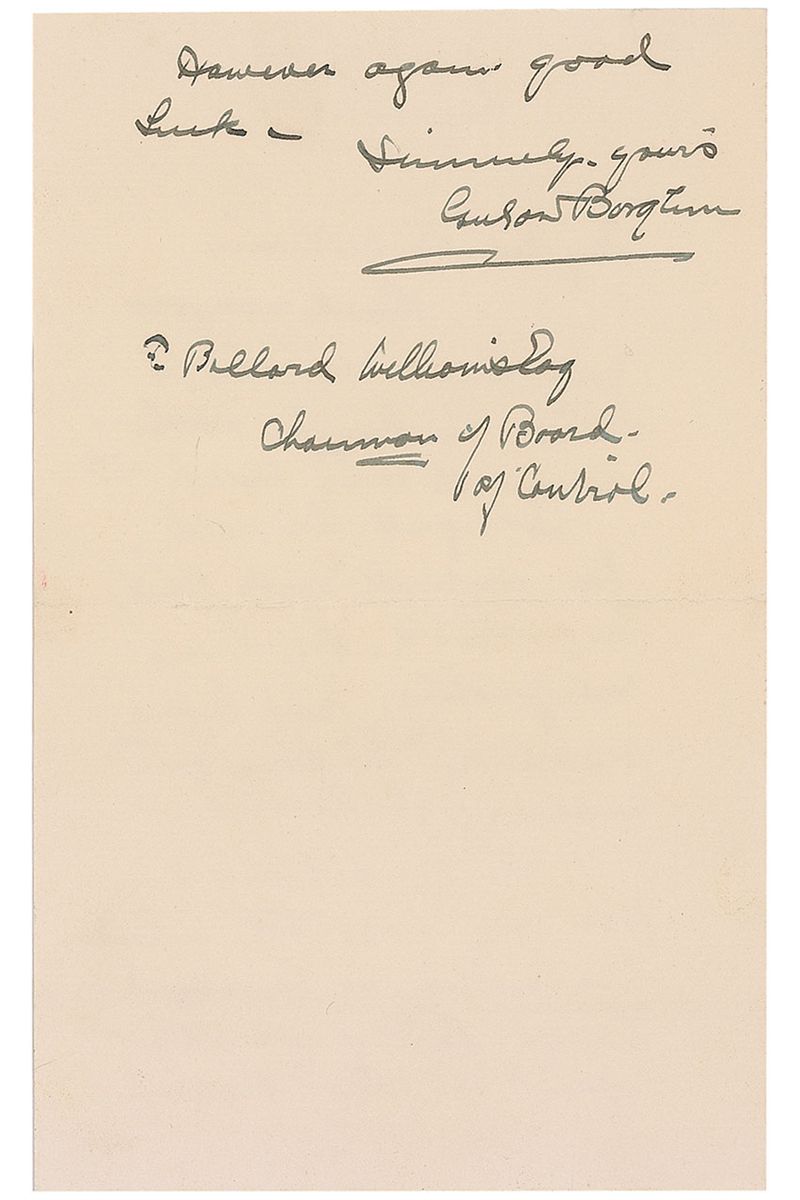 However again good
Luck –
Sincerely yours
Gutzon Borglum
F Ballard Williams Esq
Chairman of Board –
of Control –